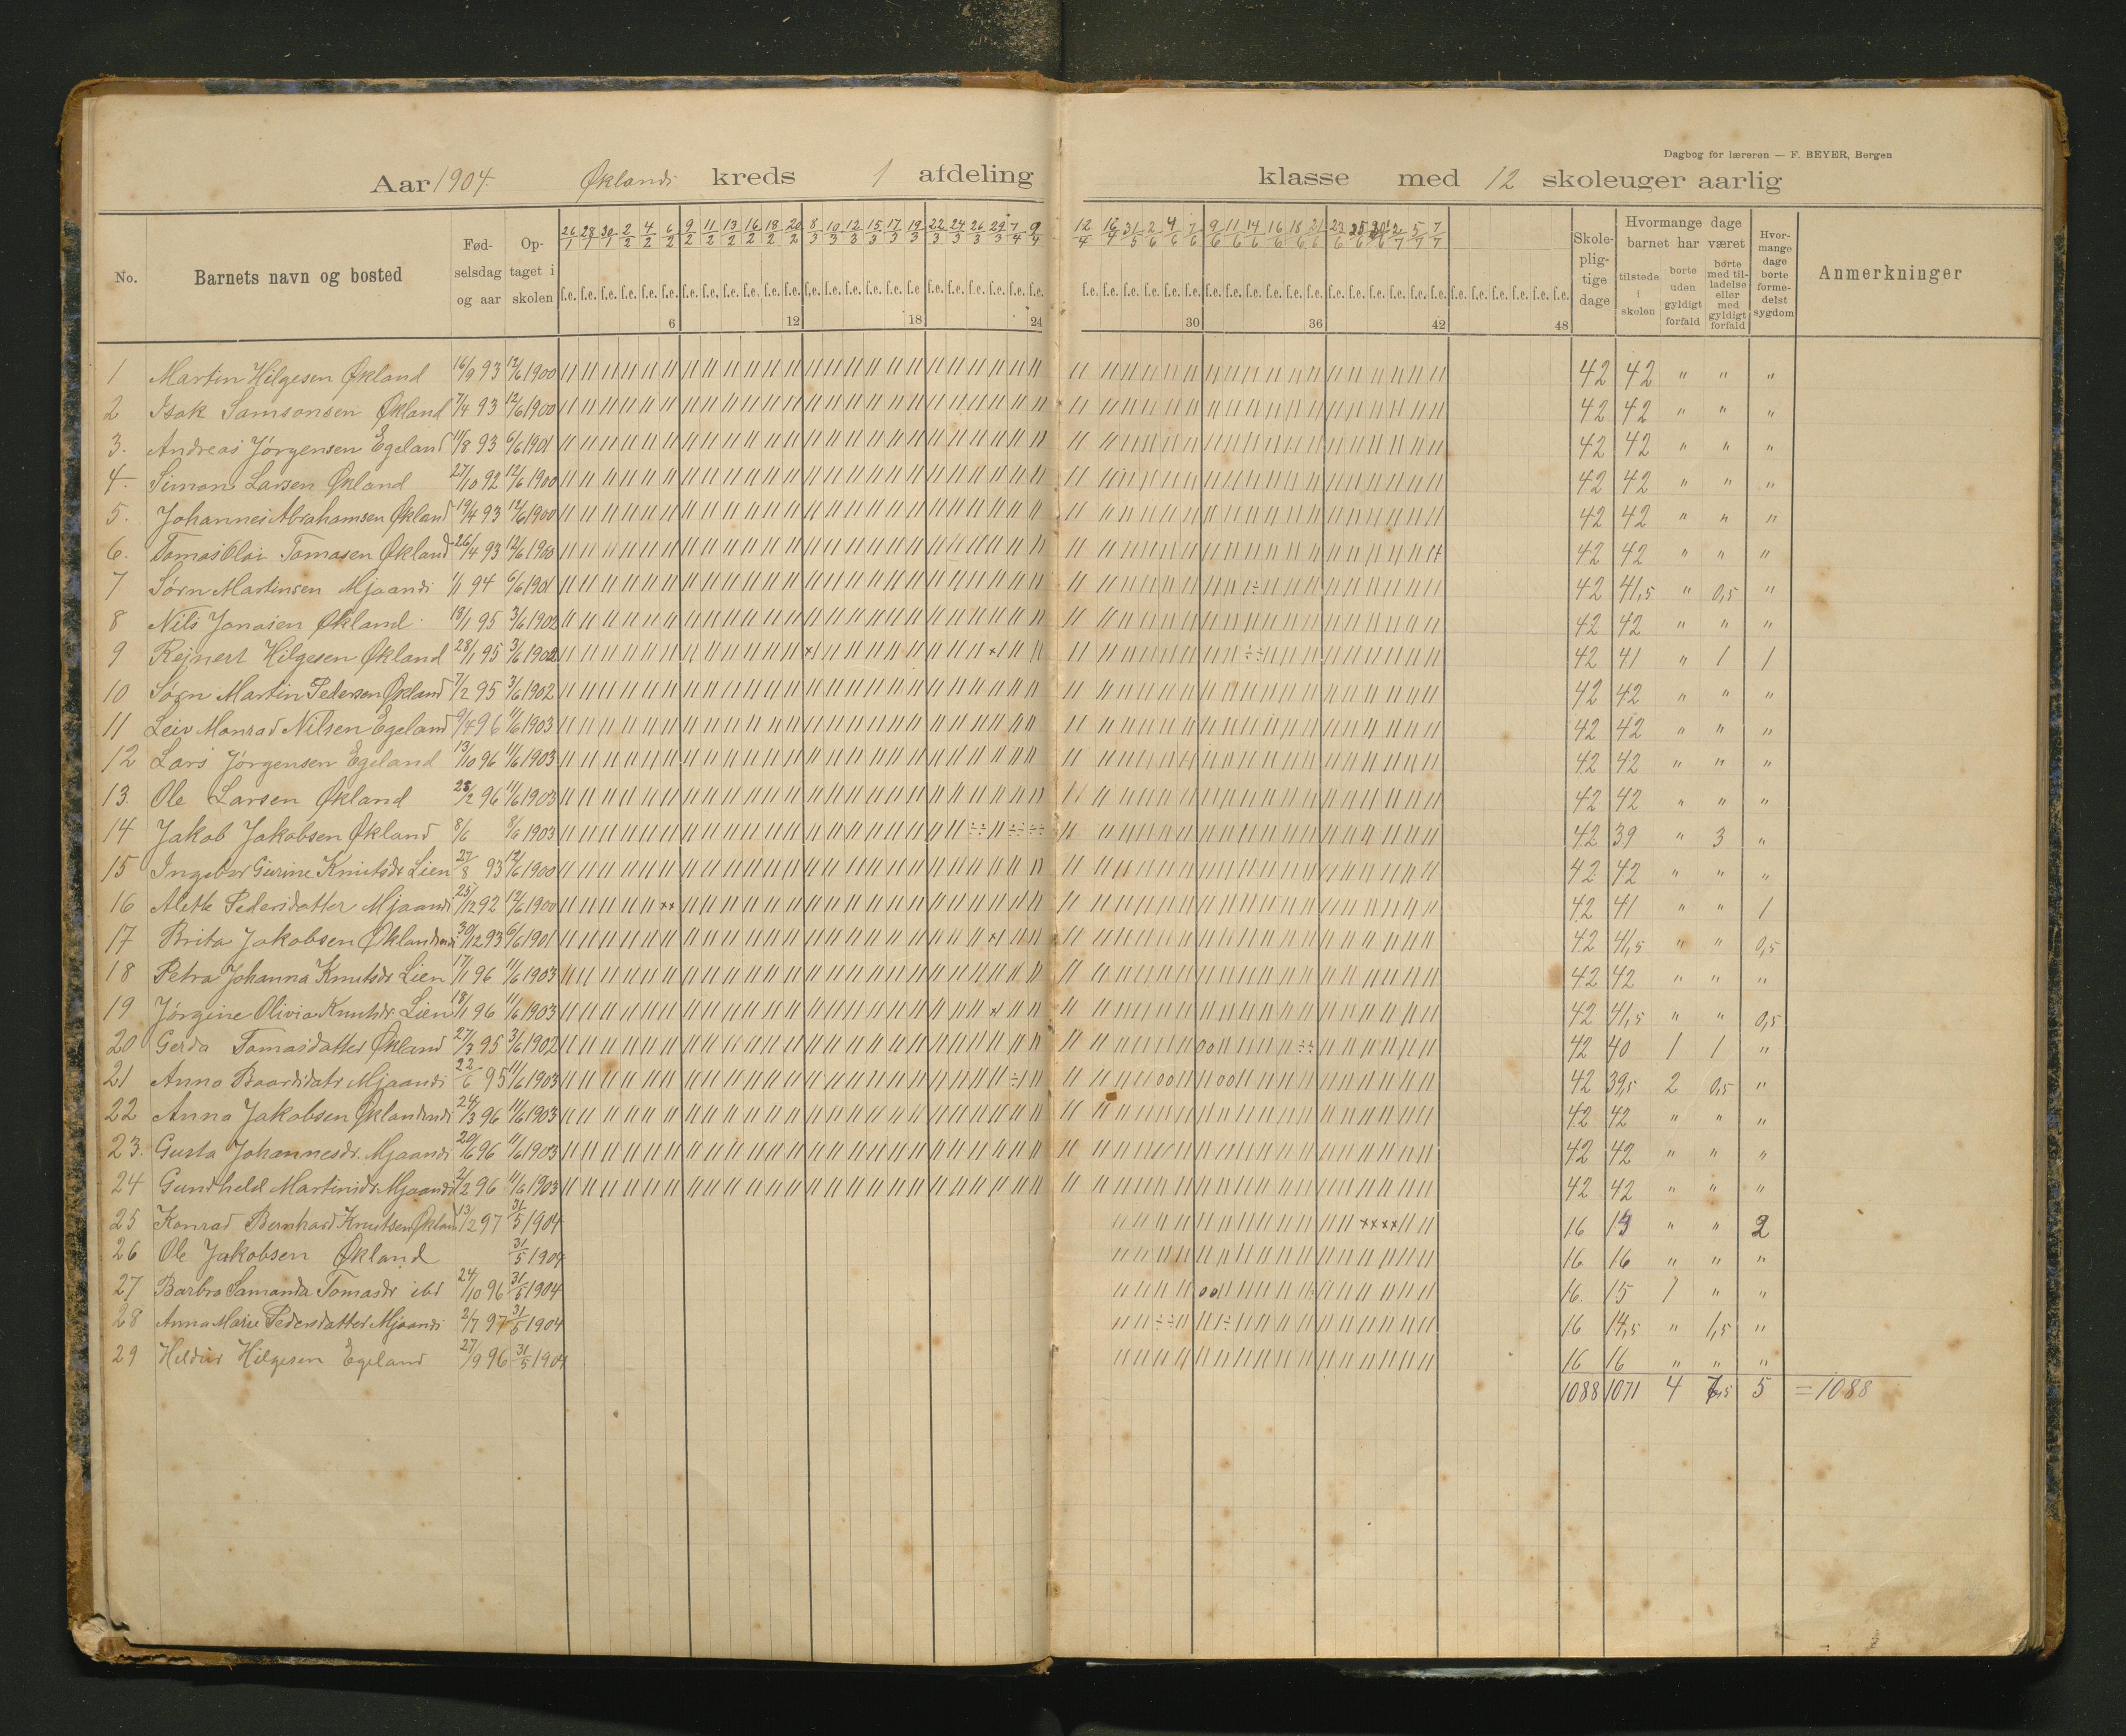 Dagbog for læreren — F. BEYER, Bergen
Aar 1904. Øklands kreds 1 afdeling klasse med 12 skoleuger aarlig
No. Barnets navn og bosted Fødselsdag og aar Optaget i skolen Skolepligtige dage Hvormange dage barnet har været Hvormange dage borte formedelst sygdom Anmerkninger
tilstede i skolen borte uden gyldigt forfald borte med tilladelse eller med gyldigt forfald
26/1 28/1 30/1 2/2 4/2 6/2 9/2 11/2 13/2 16/2 18/2 20/2 8/3 10/3 12/3 15/3 17/3 19/3 22/3 24/3 26/3 29/3 7/4 9/4 12/4 16/4 31/5 2/6 4/6 7/6 9/6 11/6 14/6 16/6 18/6 21/6 23/6 25/6 30/6 2/7 5/7 7/7
6 12 18 24 30 36 42 48
1 Martin Hilgesen Økland 16/9 93 12/6 1900 42 42 " " "
2 Isak Samsonsen Økland 7/4 93 12/6 1900 42 42 " " "
3. Andreas Jørgensen Egeland 11/8 93 6/6 1901 42 42 " " "
4. Simon Larsen Økland 27/10 92 12/6 1900 42 42 " " "
5. Johannes Abrahamsen Økland 19/4 93 12/6 1900 42 42 " " "
6. Tomas Olai Tomasen Økland 26/4 93 12/6 1900 42 42 " " "
7 Sørn Martinsen Mjaanes 1/1 94 6/6 1901 42 41,5 " 0,5 "
8 Nils Jonasen Økland 13/1 95 3/6 1902 42 42 " " "
9 Rejnert Hilgesen Økland 28/1 95 3/6 1902 42 41 " 1 1
10 Sørn Martin Pedersen Økland 7/2 95 3/6 1902 42 42 " " "
11 Leiv Monrad Nilsen Egeland 9/4 96 11/6 1903 42 42 " " "
12 Lars Jørgensen Egeland 13/10 96 11/6 1903 42 42 " " "
13. Ole Larsen Økland 28/2 96 11/6 1903 42 42 " " "
14 Jakob Jakobsen Økland 8/6 8/6 1903 42 39 " 3 "
15 Ingebor Gurine Knutsdr Lien 27/8 93 12/6 1900 42 42 " " "
16 Alette Pedersdatter Mjaanes 25/12 92 12/6 1900 42 41 " " 1
17 Brita Jakobsen Øklandsnes 30/12 93 6/6 1901 42 41,5 " " 0,5
18 Petra Johanna Knutsdr Lien 17/1 96 11/6 1903 42 42 " " "
19 Jørgine Olivia Knutsdr Lien 18/1 96 11/6 1903 42 41,5 " " 0,5
20 Gerda Tomasdatter Økland 27/3 95 3/6 1902 42 40 1 1 "
21 Anna Baardsdatr Mjaanes 22/6 95 11/6 1903 42 39,5 2 0,5 "
22 Anna Jakobsen Øklandsnes 24/3 96 11/6 1903 42 42 " " "
23. Gusta Johannesdr. Mjaanes 20/6 96 11/6 1903 42 42 " " "
24 Gundheld Martinsdr Mjaanes 2/2 96 11/6 1903 42 42 " " "
25 Konrad Bernhard Knutsen Økland 13/2 97 31/5 1904 16 13 " " 2
26 Ole Jakobsen Økland 31/5 1904 16 16 " " "
27 Barbra Samanda Tomasdr ibd 24/10 96 31/5 1904 16 15 1 " "
28 Anna Marie Pedersdatter Mjaanes 2/7 97 31/5 1904 16 14,5 " 1,5 "
29 Heldur Hilgesen Egeland 27/9 96 31/5 1904 16 16 " " "
1088 1071 4 7,5 5 = 1088